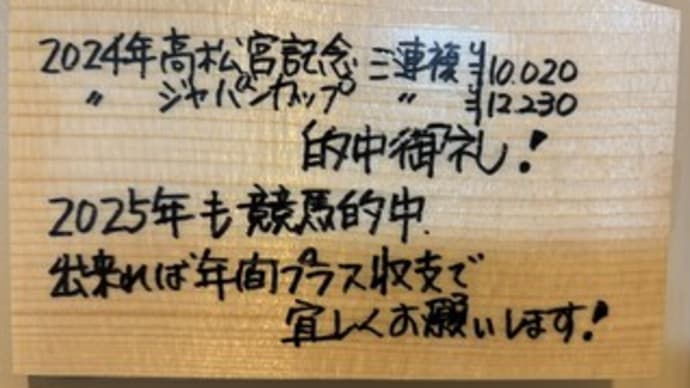 2024年高松宮記念三連複¥10.020
〃 ジャパンカップ 〃 ¥12.230
的中御礼!
2025年も競馬的中.
出来れば年間プラス収支で
宜しくお願いします!